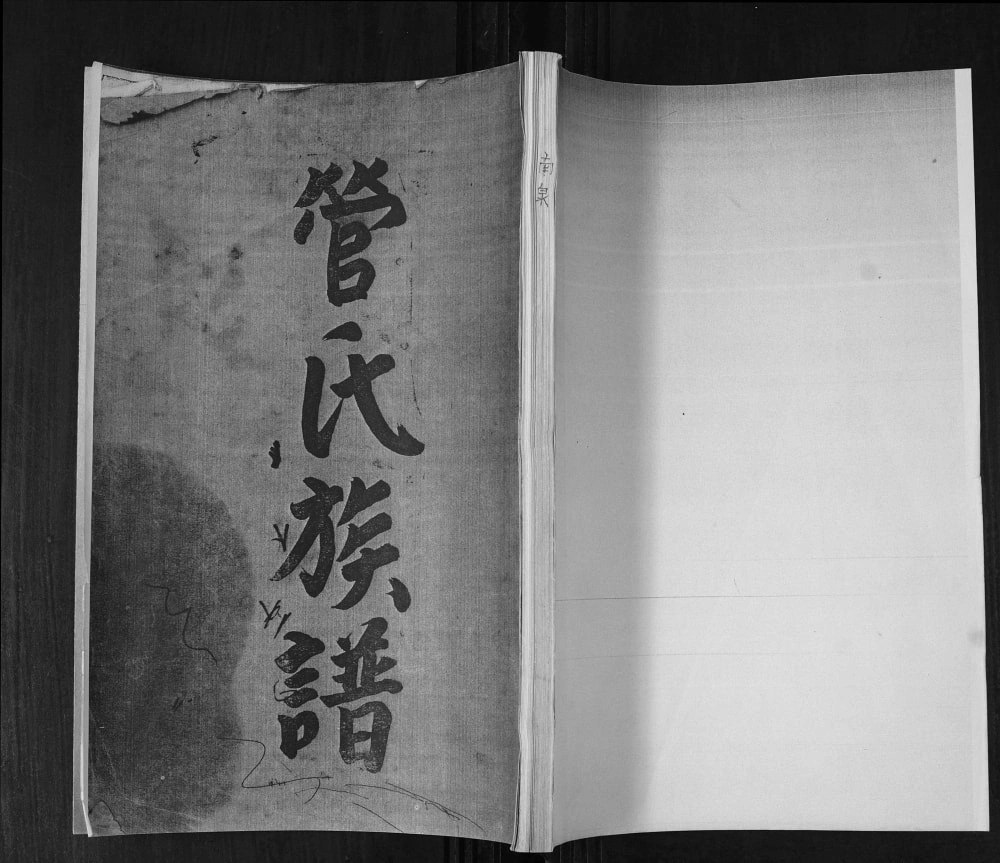 管氏族譜
南泉